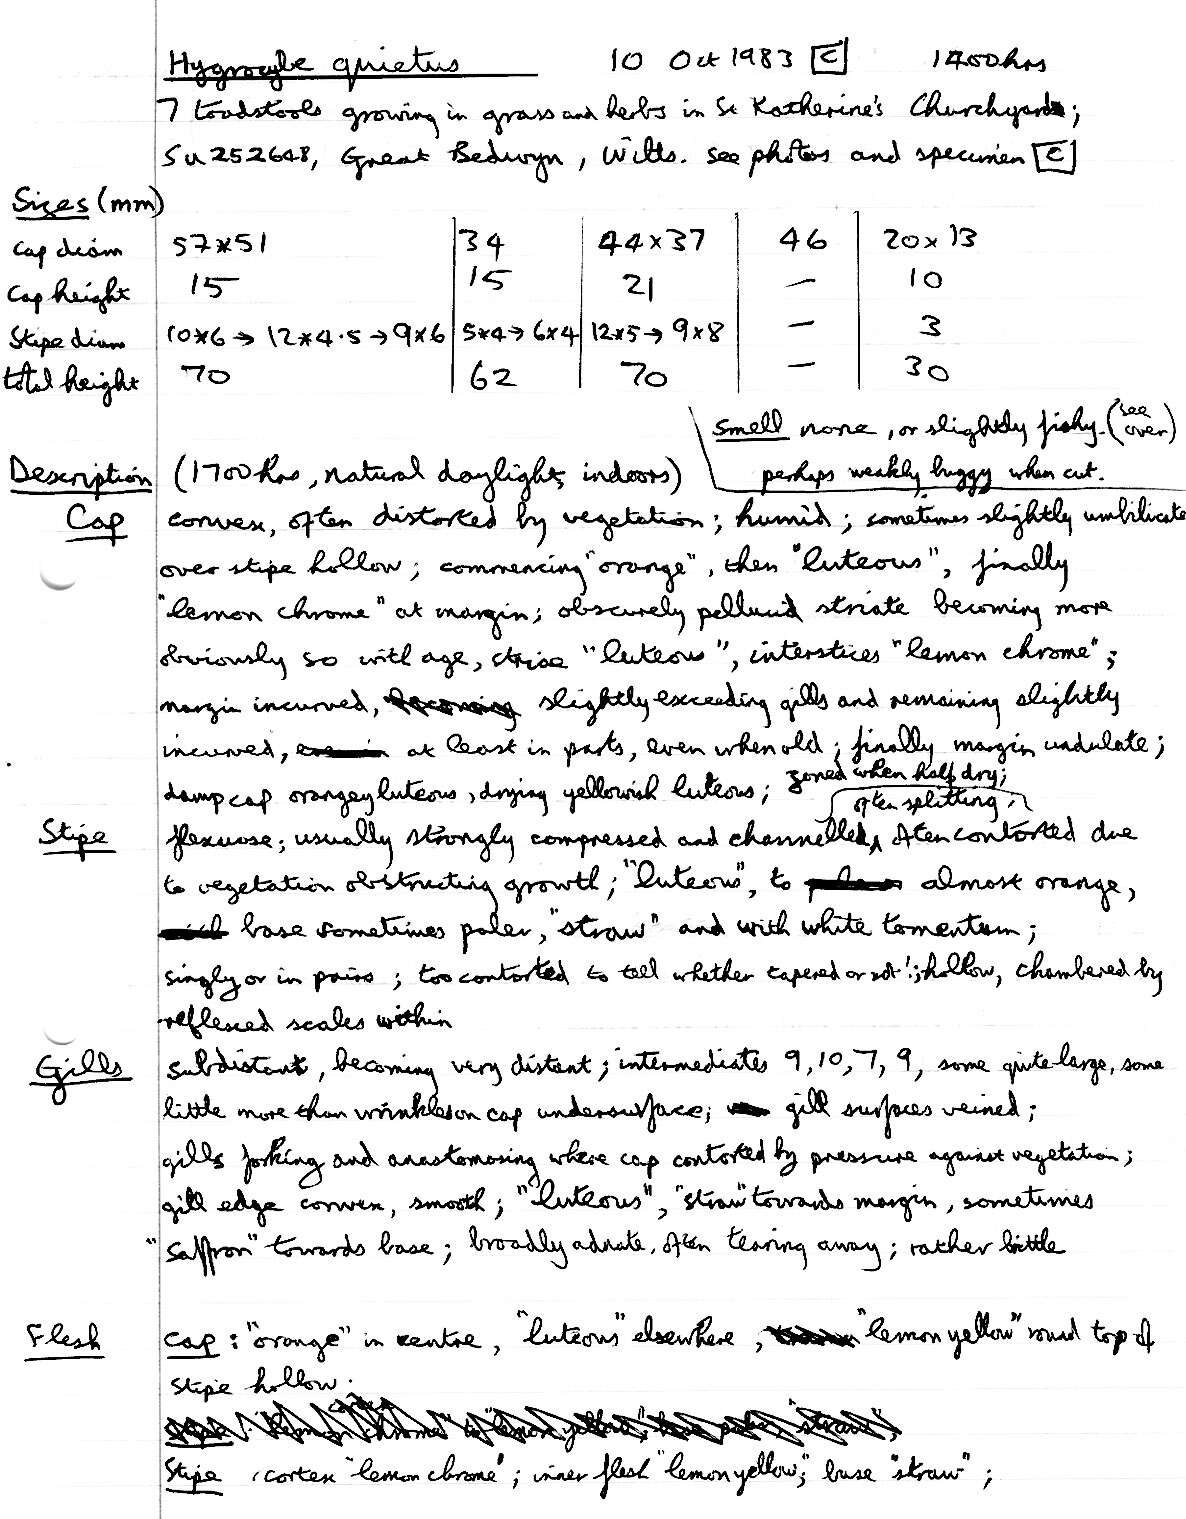 Hygrocybe quietus 10 Oct 1983 [C] 1400hrs
7 toadstools growing in grass and herbs in St Katherine's Churchyard;
SU 252648, Great Bedwyn, Wilts. see photos and specimen [C]
Sizes (mm)
Cap diam 57×51 34 44×37 46 20×13
Cap height 15 15 21 – 10
Stipe diam 10×6→12×4·5→9×6 5×4→6×4 12×5→9×8 – 3
total height 70 62 70 – 30
Smell none, or slightly fishy. (see over)
perhaps weakly buggy when cut.
Description (1700hrs, natural daylight, indoors)
Cap convex, often distorted by vegetation; humid; sometimes slightly umbilicate
over stipe hollow; commencing "orange", then "luteous", finally
"lemon chrome" at margin; obscurely pellucid striate becoming more
obviously so with age, striae "luteous", interstices "lemon chrome";
margin incurved, becoming slightly exceeding gills and remaining slightly
incurved, at least in parts, even when old; finally margin undulate;
damp cap orangey luteous, drying yellowish luteous; zoned when half dry;
often splitting,
Stipe flexuose; usually strongly compressed and channelled, often contorted due
to vegetation obstructing growth; "luteous", to almost orange,
base sometimes paler, "straw" and with white tomentum;
singly or in pairs; too contorted to tell whether tapered or not!; hollow, chambered by
reflexed scales within
Gills subdistant, becoming very distant; intermediates 9, 10, 7, 9, some quite large, some
little more than wrinkles on cap undersurface; gill surfaces veined;
gills forking and anastomosing where cap contorted by pressure against vegetation;
gill edge convex, smooth; "luteous", "straw" towards margin, sometimes
"saffron" towards base; broadly adnate, often tearing away; rather brittle
Flesh cap: "orange" in centre, "luteous" elsewhere, "lemon yellow" round top of
stipe hollow.
Stipe cortex "lemon chrome"; inner flesh "lemon yellow"; base "straw";